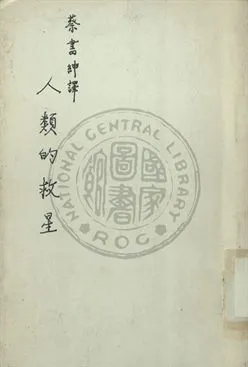 蔡書紳譯
人類的救星
NATIONAL CENTRAL LIBRARY
ROC
國家圖書館